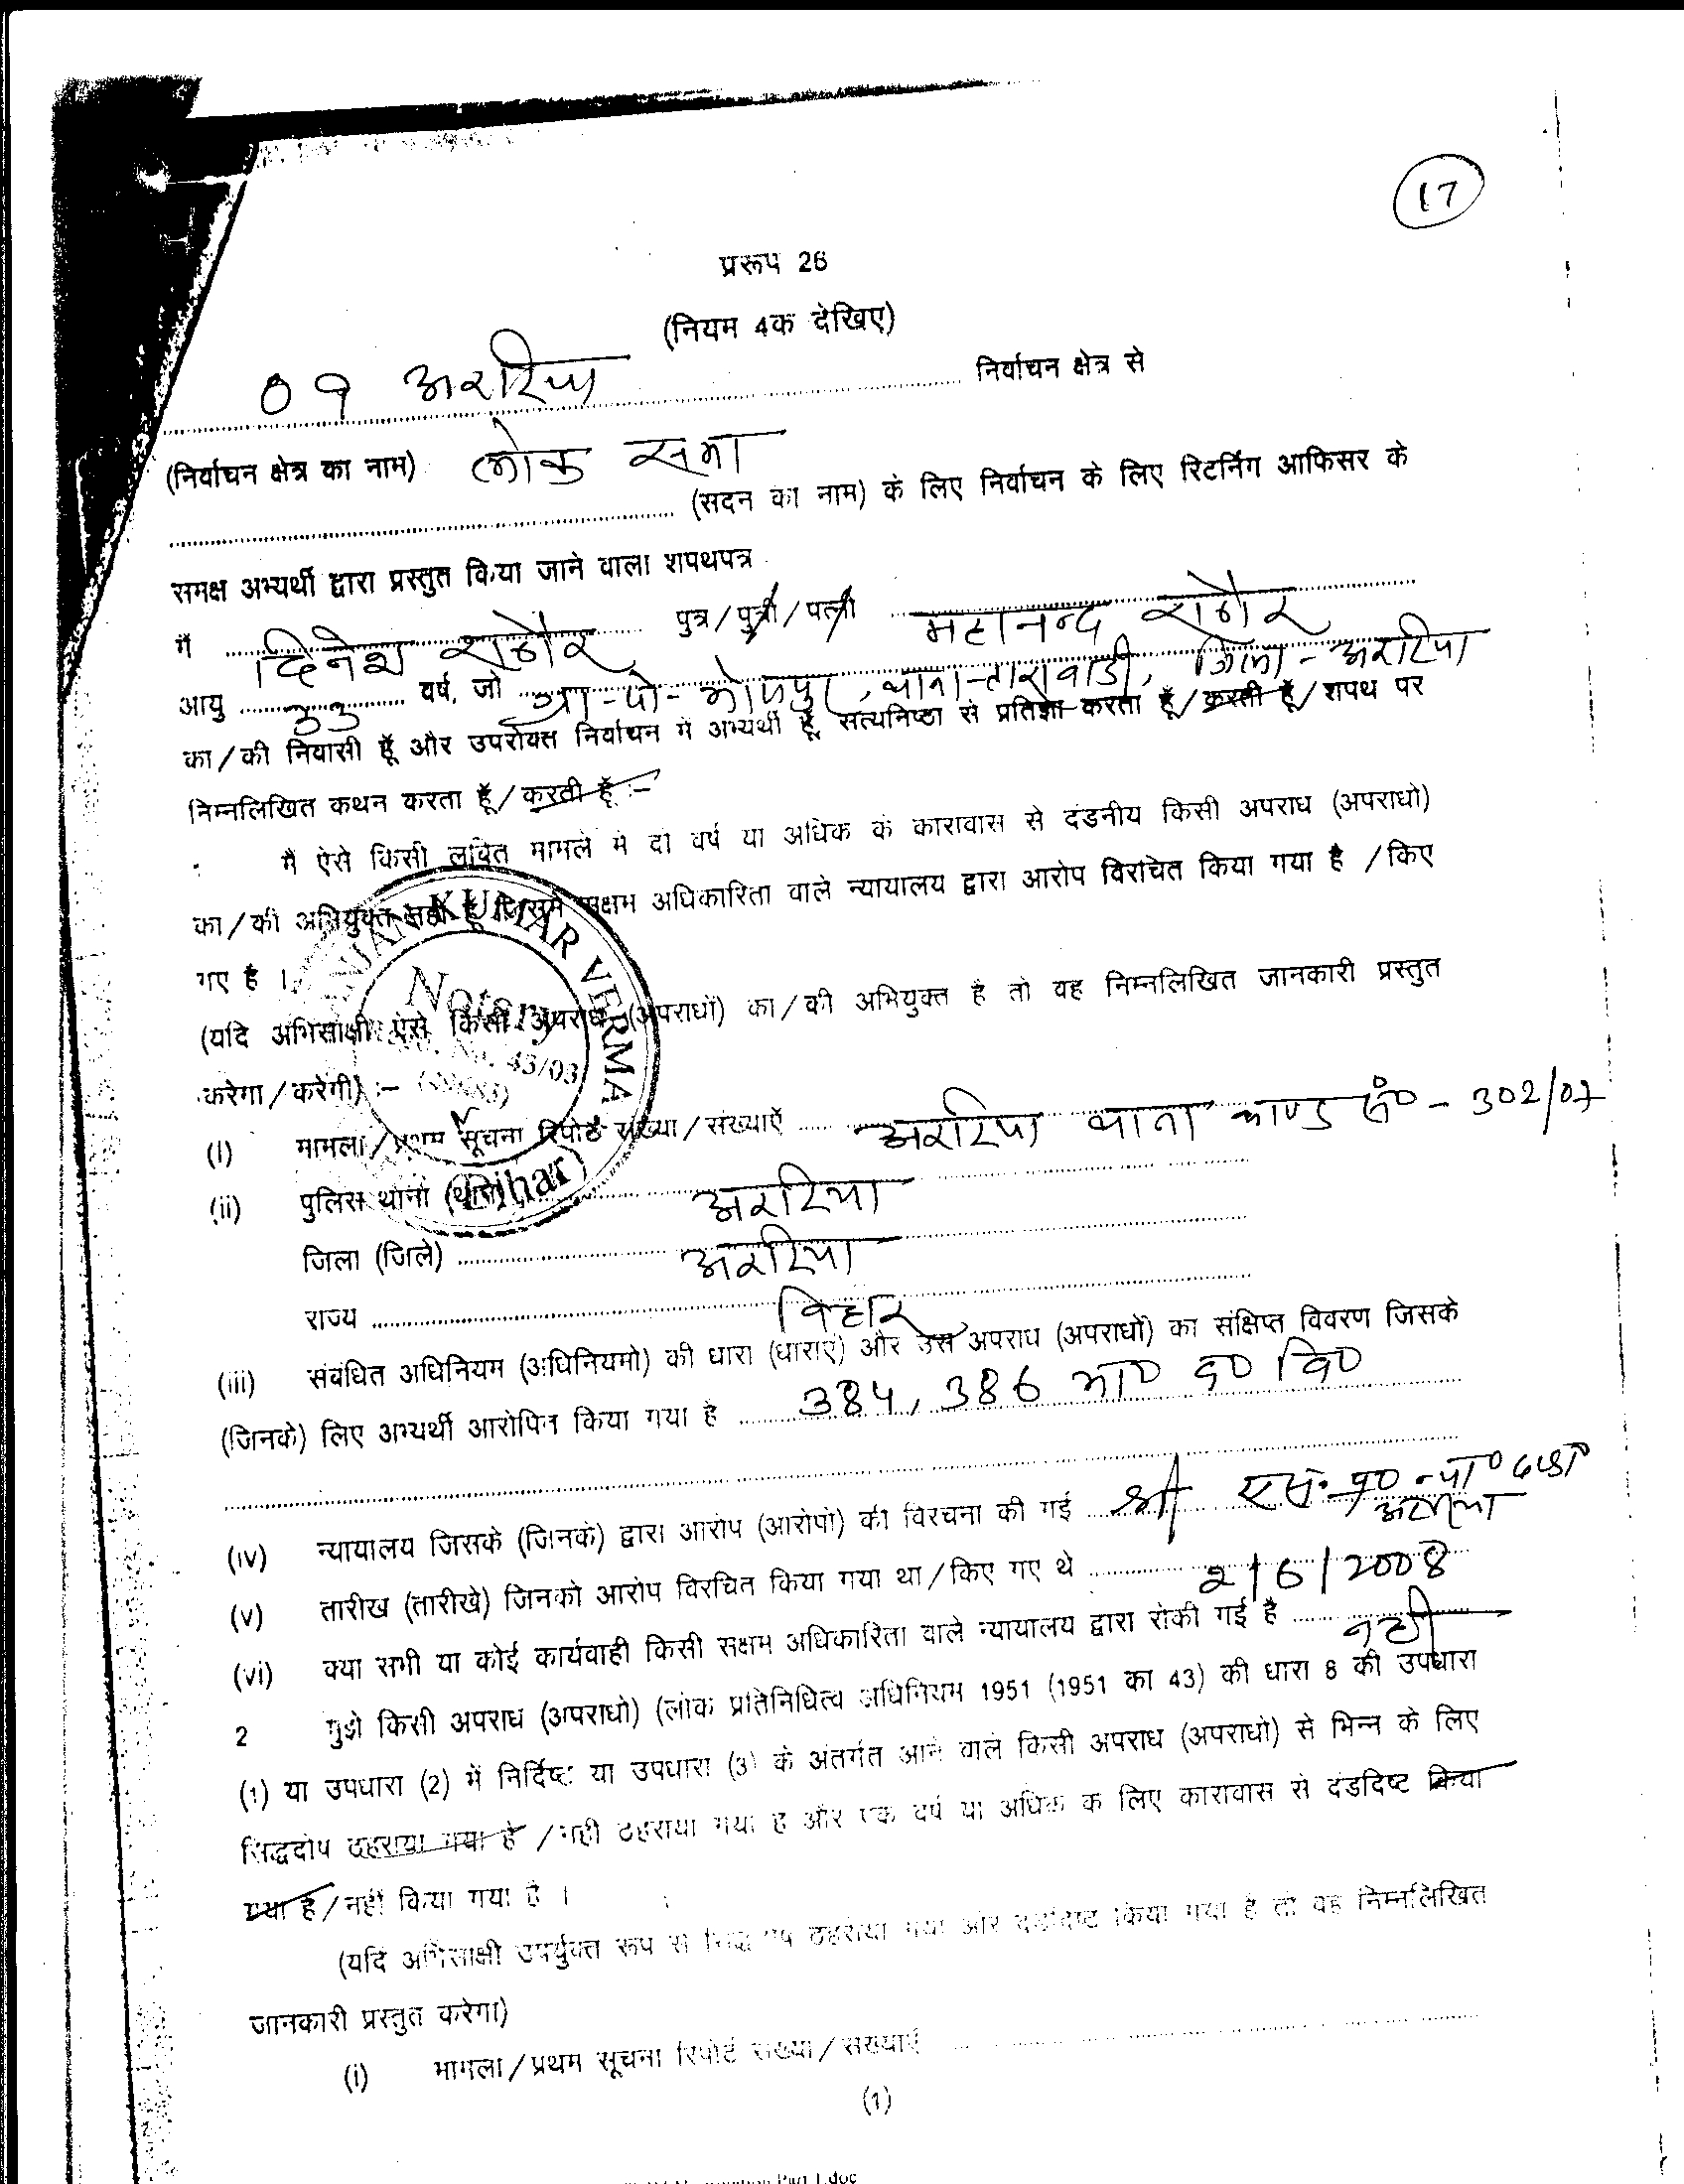 17
प्ररूप 26
(नियम 4क देखिए)
09 अररिया निर्वाचन क्षेत्र से
(निर्वाचन क्षेत्र का नाम) लोक सभा
(सदन का नाम) के लिए निर्वाचन के लिए रिटर्निंग आफिसर के
समक्ष अभ्यर्थी द्वारा प्रस्तुत किया जाने वाला शपथपत्र
मैं दिनेश राठौर पुत्र/पुत्री/पत्नी महानन्द राठौर
आयु 33 वर्ष, जो ग्रा-पो- , थाना-ताराबाडी, जिला-अररिया
का/की निवासी हूँ और उपरोक्त निर्वाचन में अभ्यर्थी हूँ, सत्यनिष्ठा से प्रतिज्ञा करता हूँ/करती हूँ/शपथ पर
निम्नलिखित कथन करता हूँ/करती हूँ :–
मैं ऐसे किसी लंबित मामले में दो वर्ष या अधिक के कारावास से दंडनीय किसी अपराध (अपराधो)
का/की अभियुक्त नहीं हूँ जिसमें सक्षम अधिकारिता वाले न्यायालय द्वारा आरोप विरचित किया गया है /किए
गए है ।
(यदि अभिसाक्षी ऐसे किसी अपराध (अपराधों) का/की अभियुक्त है तो वह निम्नलिखित जानकारी प्रस्तुत
करेगा/करेगी) :–
KUMAR VERMA
Notary
43/03
(Bihar)
(i) मामला/प्रथम सूचना रिपोर्ट संख्या/संख्याएँ अररिया थाना काण्ड सं० - 302/07
(ii) पुलिस थाना (थाने) अररिया
जिला (जिले) अररिया
राज्य बिहार
(iii) संबंधित अधिनियम (अधिनियमो) की धारा (धाराएं) और उस अपराध (अपराधों) का संक्षिप्त विवरण जिसके
(जिनके) लिए अभ्यर्थी आरोपित किया गया है 384, 386 भा० द० वि०
(iv) न्यायालय जिसके (जिनके) द्वारा आरोप (आरोपो) की विरचना की गई श्री एस. अररिया
(v) तारीख (तारीखे) जिनको आरोप विरचित किया गया था/किए गए थे 2/6/2008
(vi) क्या सभी या कोई कार्यवाही किसी सक्षम अधिकारिता वाले न्यायालय द्वारा रोकी गई है नही
2 मुझे किसी अपराध (अपराधो) (लोक प्रतिनिधित्व अधिनियम 1951 (1951 का 43) की धारा 8 की उपधारा
(1) या उपधारा (2) में निर्दिष्ट या उपधारा (3) के अंतर्गत आने वाले किसी अपराध (अपराधो) से भिन्न के लिए
सिद्धदोष ठहराया गया है /नही ठहराया गया है और एक वर्ष या अधिक के लिए कारावास से दंडदिष्ट किया
गया है/नहीं किया गया है ।
(यदि अभिसाक्षी उपर्युक्त रूप से सिद्धदोष ठहराया गया और दंडदिष्ट किया गया है तो वह निम्नलिखित
जानकारी प्रस्तुत करेगा)
(i) मामला/प्रथम सूचना रिपोर्ट संख्या/संख्याएँ
(1)